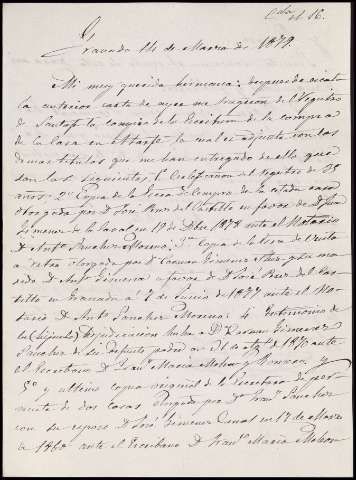 Granada 14 de Marzo de 1879.
Mi muy querida hermana: despues de escrita
la anterior carta de ayer me trageron del Registro
de Santafe la compra de la Escritura de la compra
de la Casa en Atarfe la cual es adjunta con los
demas titulos que me han entregado de ella que
son los siguientes; 1º Certificacion del registro de 35
años; 2º Copia de la Escra de Compra de la citada casa
otorgada por D. José Ruiz de Castillo en favor de D. Juan
Gimenez de la Casa en 19 de Dbre 1878 ante el Notario
D. Antº Sanchez Moreno; 3º Copia de la Escra de venta
otorgada por Dª Carmen Gimenez y su ma
rido D. Antº Gimena a favor de D. José Ruiz del Cas
tillo en Granada a 7 de Junio de 1877 ante el No
tario D. Antº Sanchez Moreno: 4º Testimonio de
la Adjudicacion hecha a Dª Carmen Gimenez
Sanchez de su difunto padre en de 1870 ante
el Escribano D. Franº Maria Molero y
5º y ultimo copia original de la Escritura de per
muta de dos casas otorgada por Dª Franª Sanchez
con su esposo D. José Gimenez en 17 de Marzo
de 1860 ante el Escribano D. Franº Maria Molero